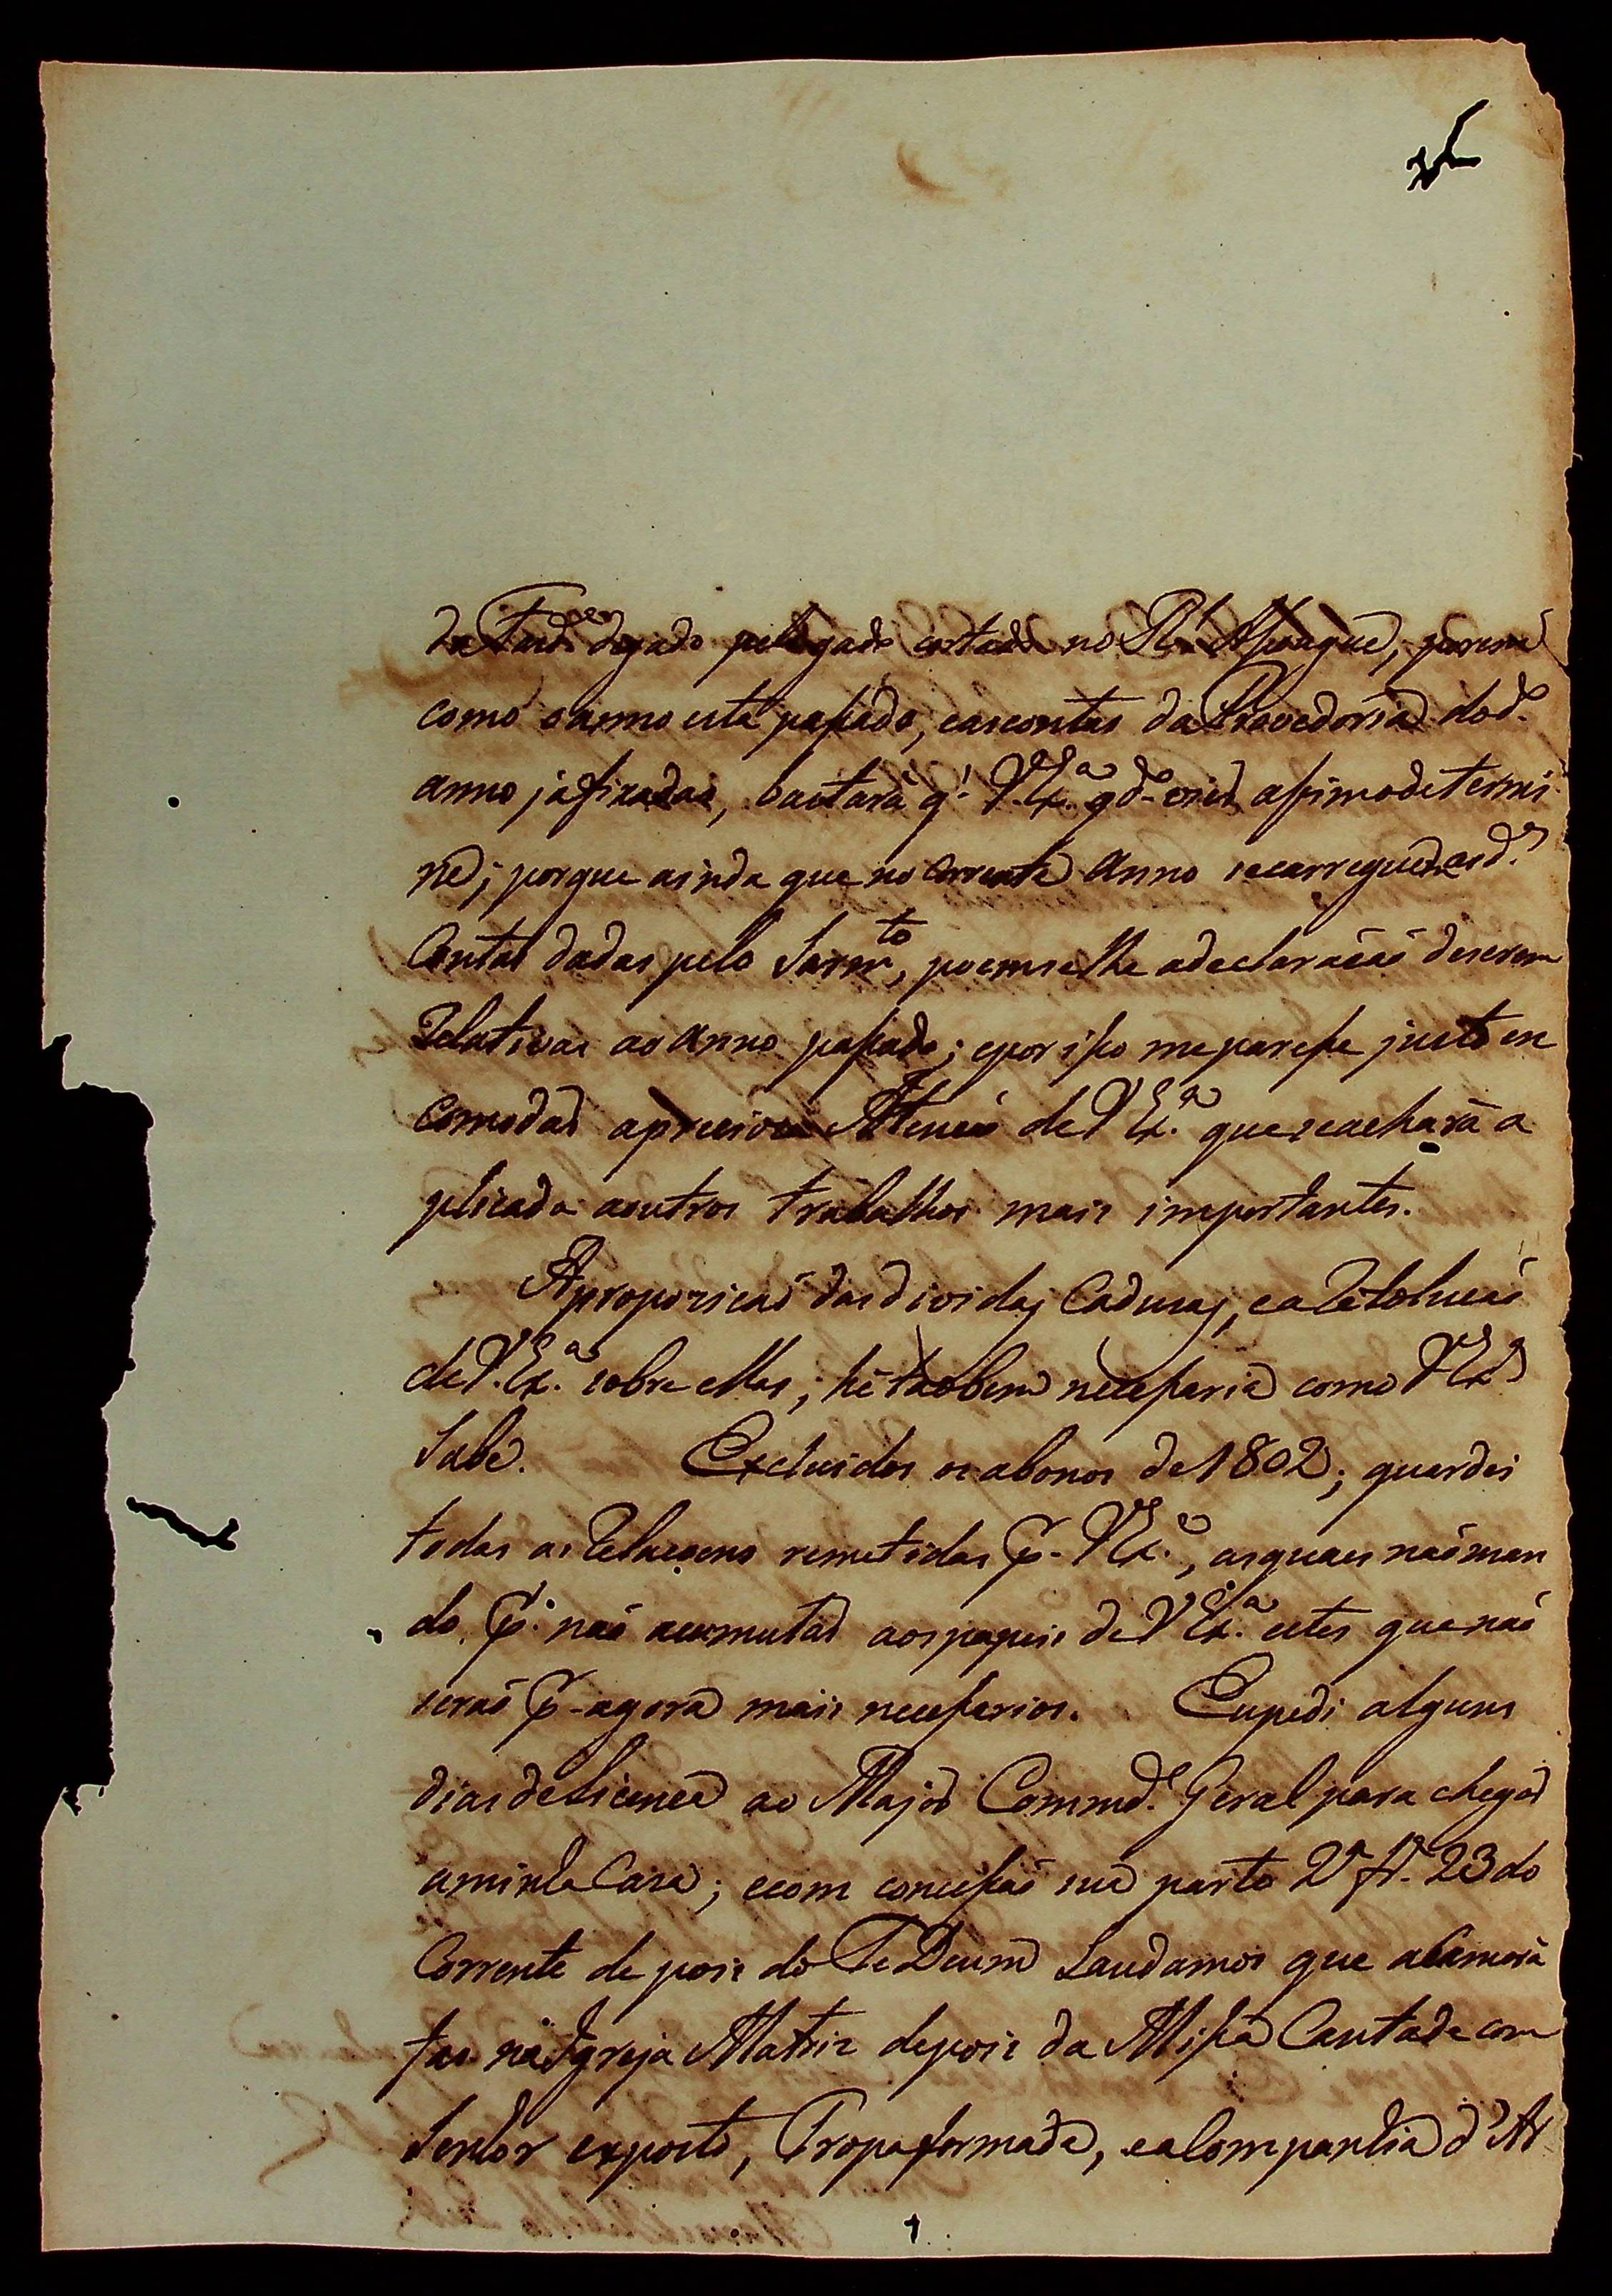 da Fazd.ª degado pelo gado cortado no R.l Asougue, porem
como o anno está passado, eascontas da Provedoria dod.
anno jáfixadas, bastará q' V. Ex.ª assimodetermi
ne; porque ainda que no corrente Anno secarreguem asd.s
Contas dadas pelo Sarm.to, poemselhe adeclaraçaõ deserem
Relativas ao anno passado; epor isso meparese justo en
comodar apreciosa Atençaõ de V Ex.ª queseachará a
plicada aoutros trabalhos mais importantes.
Aproposicaõ dasdividas Caducas, ea Rezolucaõ
de V. Ex.ª sobre ellas; hé taobem nesesaria como V Ex.ª
Sabe. Excluidos osabonos de 1802; guardei
todas as Relacoens remetidas p.r V Ex.ª, asquaes naõman
do p.r naõ acumular aospapeis de V Ex.ª estes quenaõ
seraõ p.r agora mais necessarios. Eu pedi alguns
dias de Licença ao Major Commd.e Geral para chegar
aminhaCasa; ecom concessaõ sua parto 2.ª fr.ª 23 do
Corrente de pois do Te Deum Laudamos que aCamera
faz naIgreja Matriz depois da Missa Cantada com
Senhor exposto, Tropa formada, eaCompanhia d'Ar